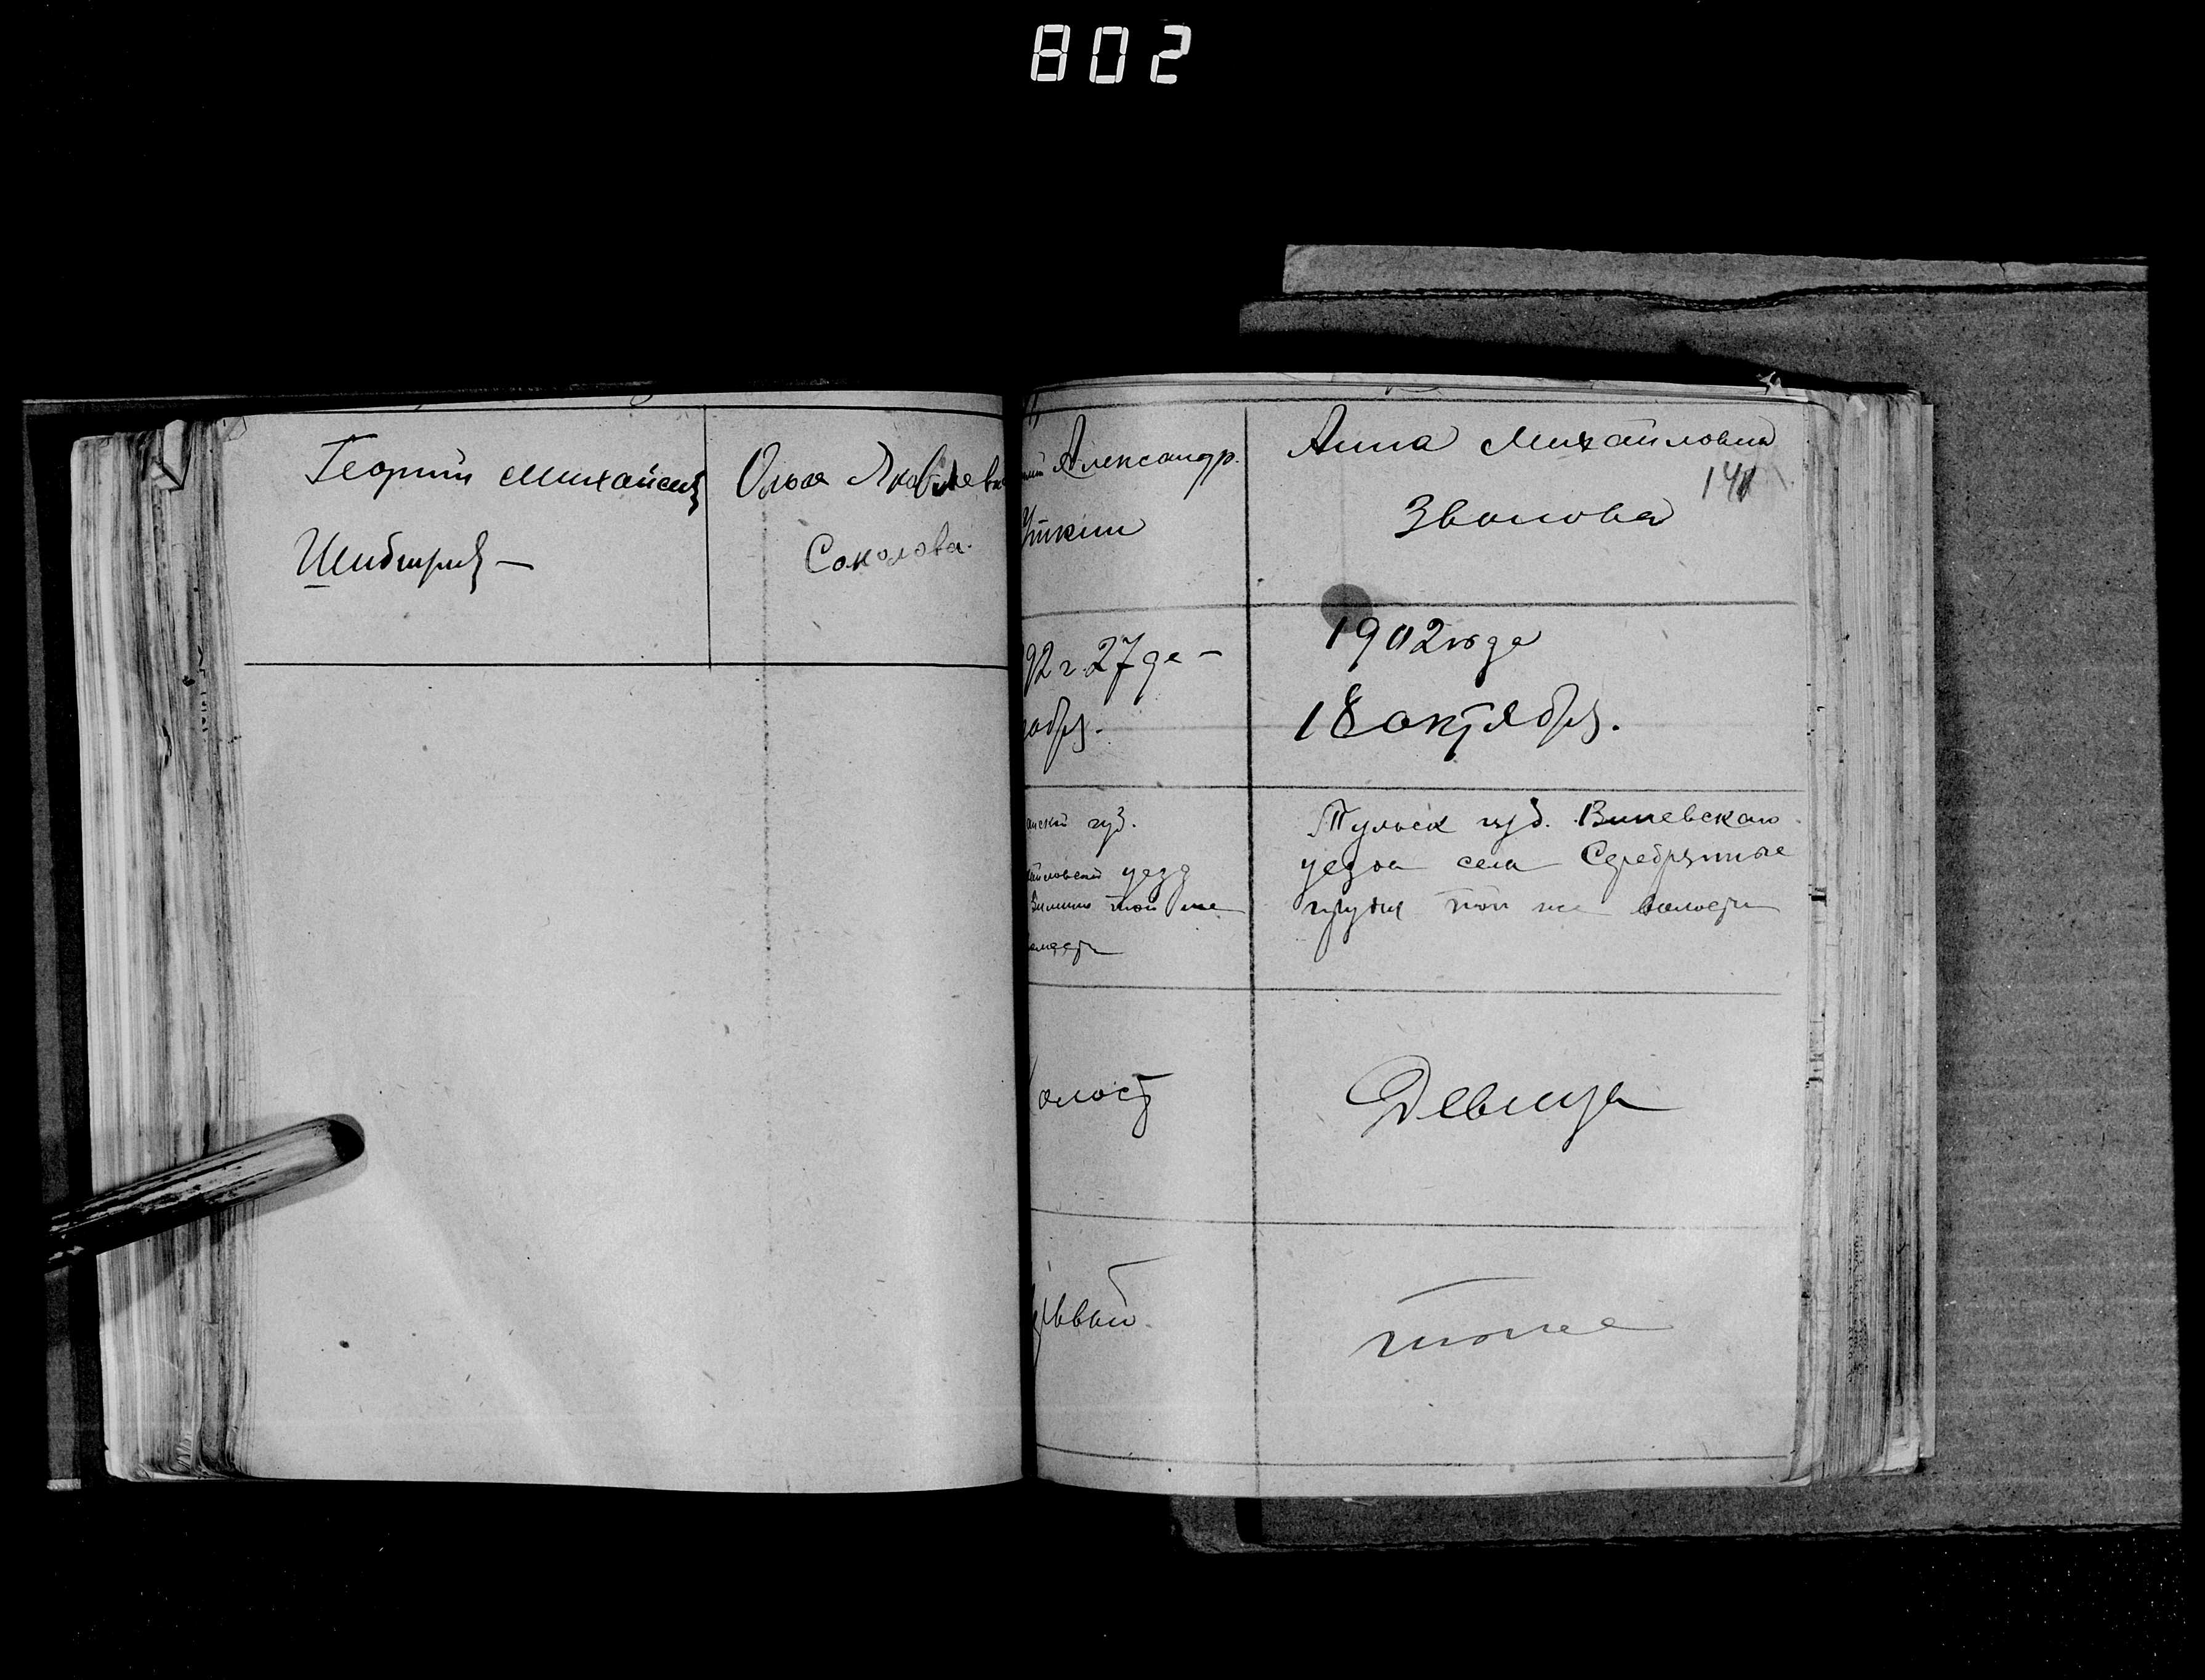 802
Георгий Михайлов
Ольга Яковлевна
Соколова.
Александр.
Уткин
92 г. 27 де-
кабря.
губ.
уезд
той же
олост
Анна Михайловна
141
Званова
1902 года
18 октября.
Тульск губ. Веневскаго
уезда села Серебрянные
пруды той же волости
Девица
тоже